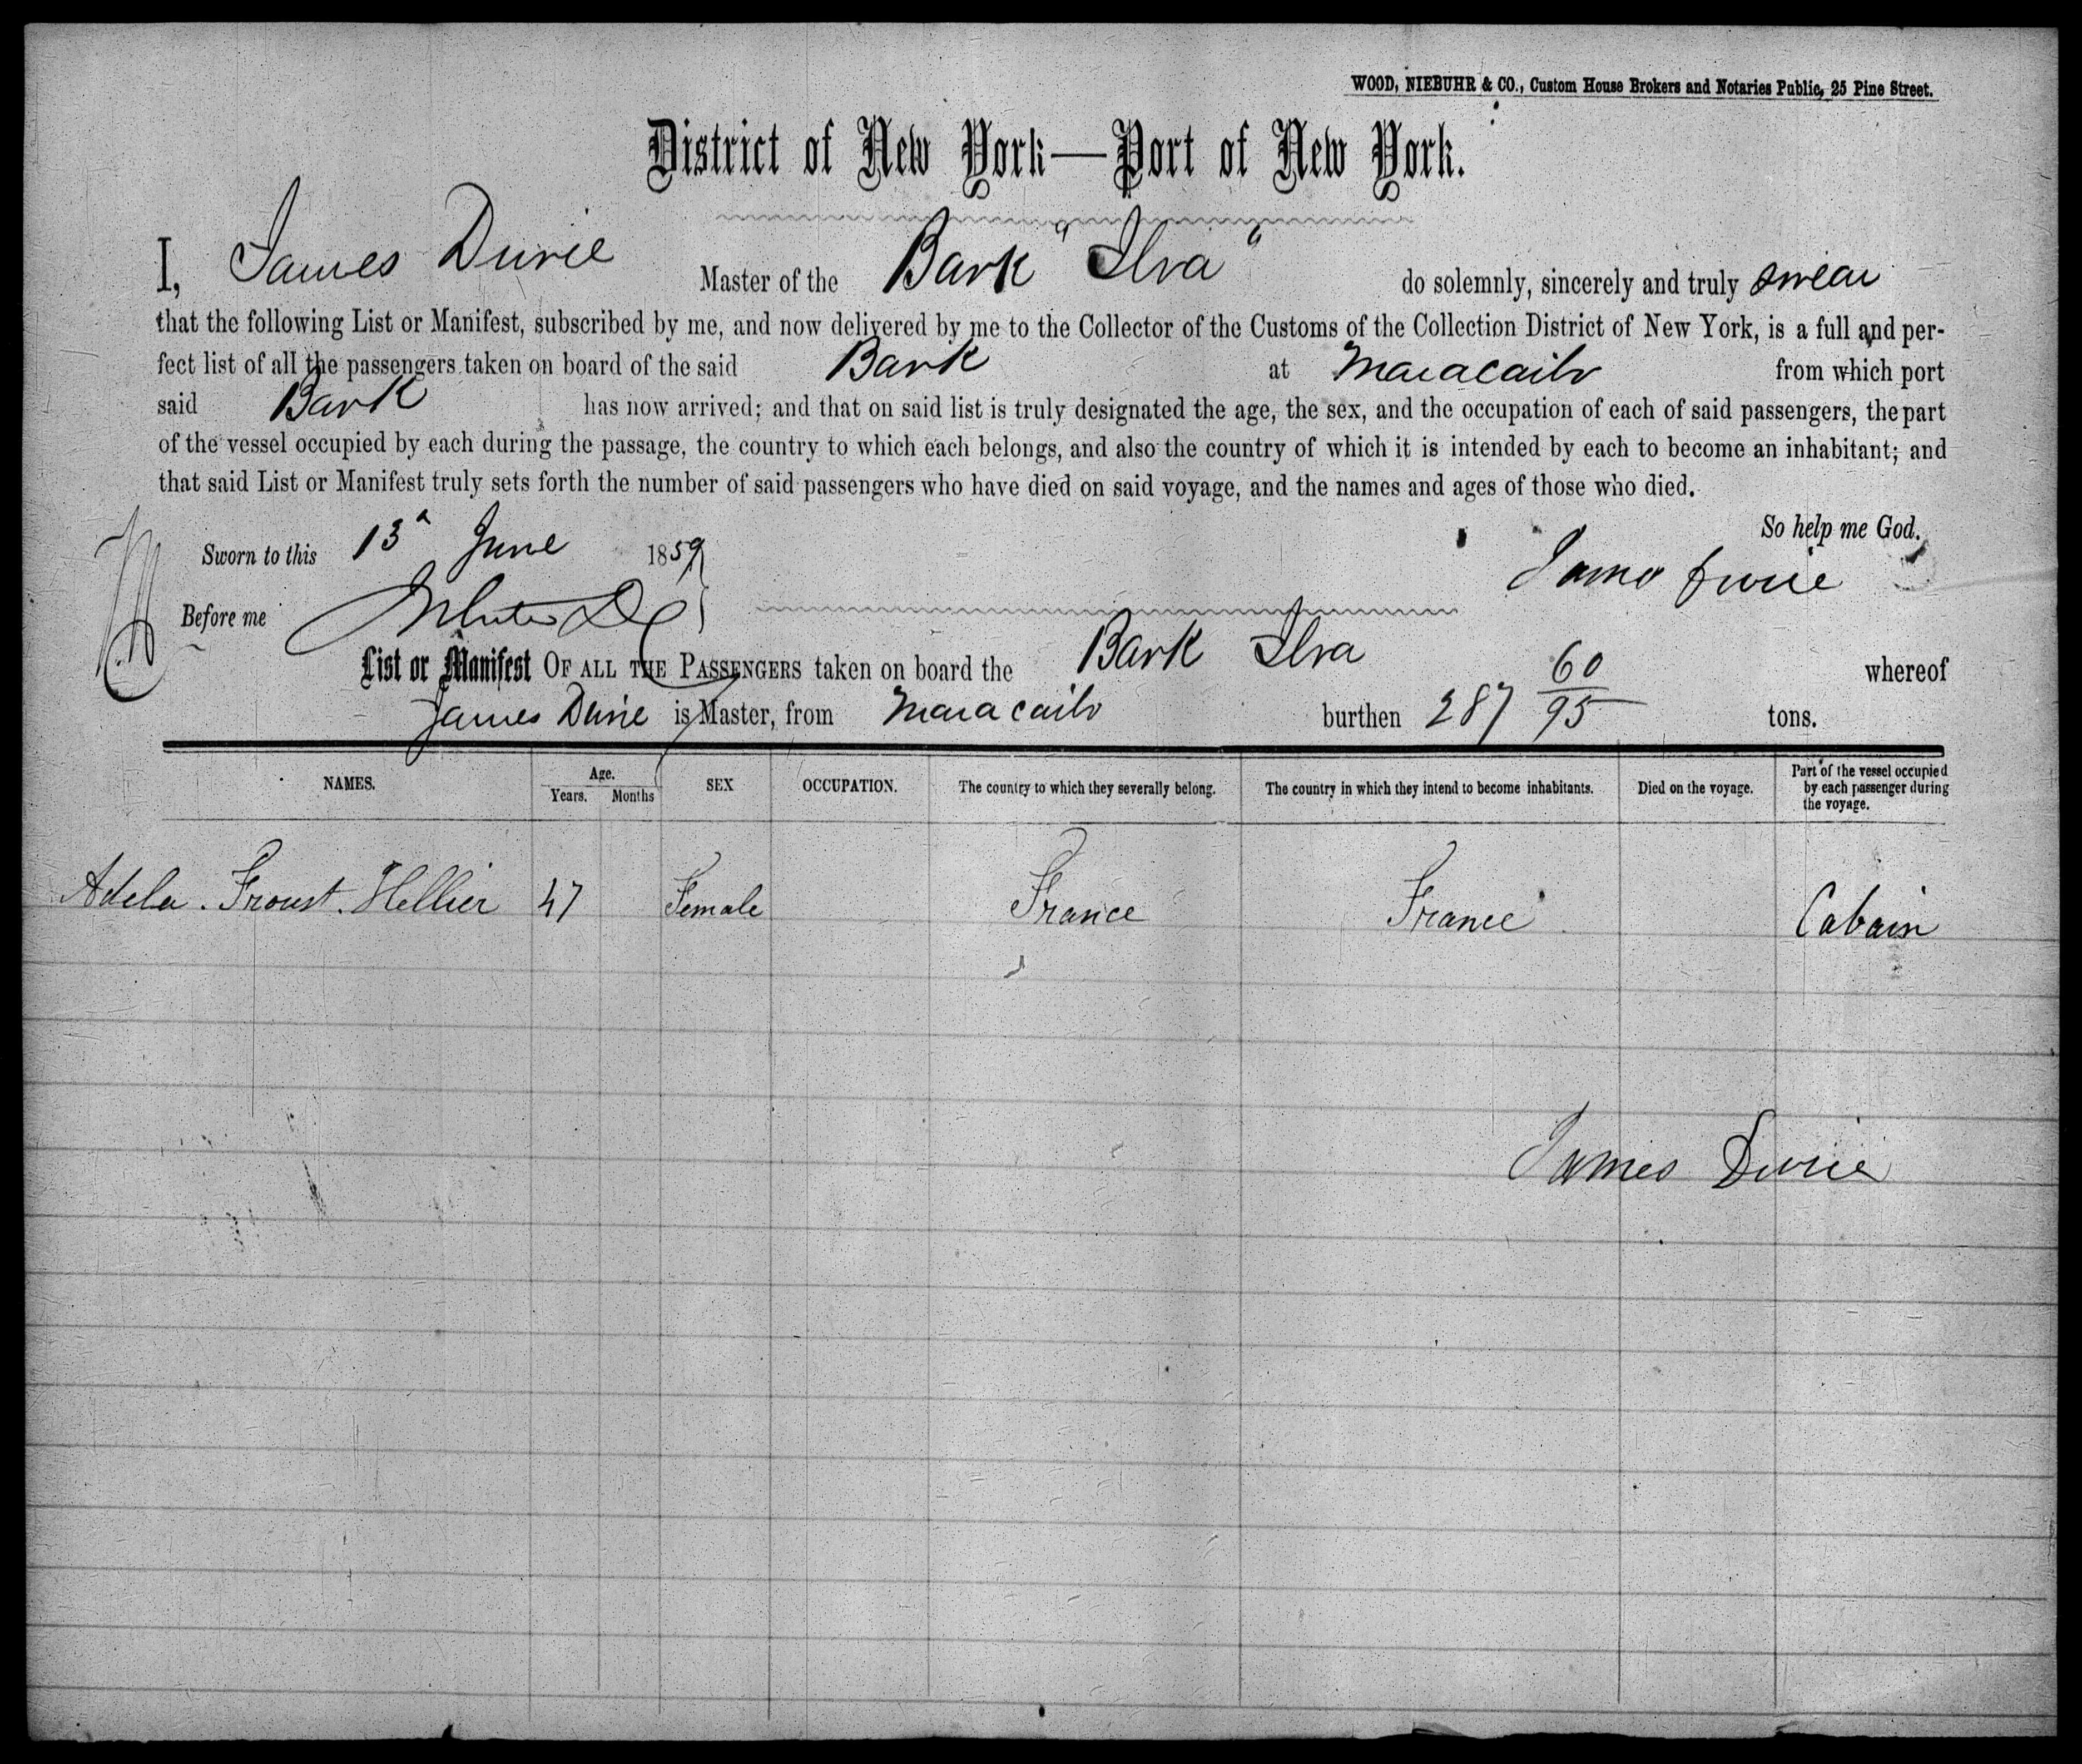 WOOD, NIEBUHR & CO., Custom House Brokers and Notaries Public, 25 Pine Street.
District of New York—Port of New York.
I, James Durie Master of the Bark "Ilva" do solemnly, sincerely and truly swear
that the following List or Manifest, subscribed by me, and now delivered by me to the Collector of the Customs of the Collection District of New York, is a full and per-
fect list of all the passengers taken on board of the said Bark at Maracaibo from which port
said Bark has now arrived; and that on said list is truly designated the age, the sex, and the occupation of each of said passengers, the part
of the vessel occupied by each during the passage, the country to which each belongs, and also the country of which it is intended by each to become an inhabitant; and
that said List or Manifest truly sets forth the number of said passengers who have died on said voyage, and the names and ages of those who died.
So help me God.
Sworn to this 13 June 1859
James Durie
Before me
List or Manifest OF ALL THE PASSENGERS taken on board the Bark Ilva whereof
James Durie is Master, from Maracaibo burthen 287 60/95 tons.
NAMES. Age. Years. Months SEX OCCUPATION. The country to which they severally belong. The country in which they intend to become inhabitants. Died on the voyage. Part of the vessel occupied by each passenger during the voyage.
Adela. Froust. Hellier 47 Female France France Cabain
James Durie